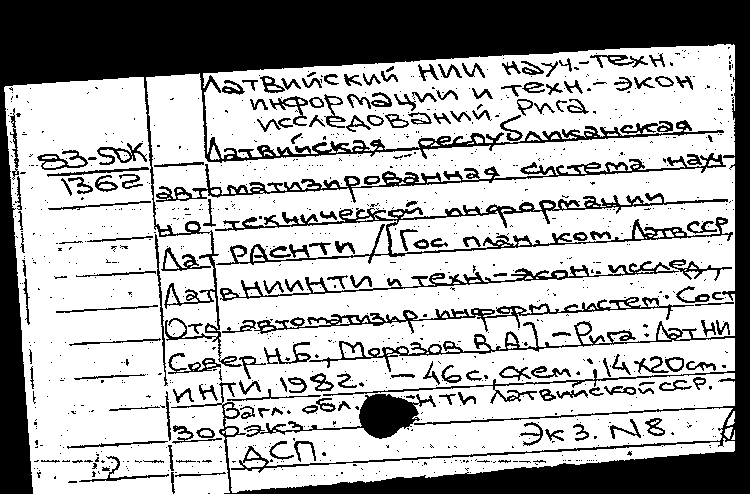 Латвийский НИИ науч.-техн.
информации и техн.-экон.
исследований. Рига.
83-5DK
1362
Латвийская республиканская
автоматизированная система науч-
но-технической информации
Лат РАСНТИ / [Гос. план. ком. ЛатвССР,
ЛатвНИИНТИ и техн.-экон. исслед.,
Отд. автоматизир. информ. систем; Сост.
Совер Н.Б., Морозов В.А.]. - Рига: ЛатНИ
ИНТИ, 1982. - 46 с. схем.; 14х20 cm.
Загл. обл. НТИ Латвийской ССР. -
300 экз.
ДСП. Экз. N8.